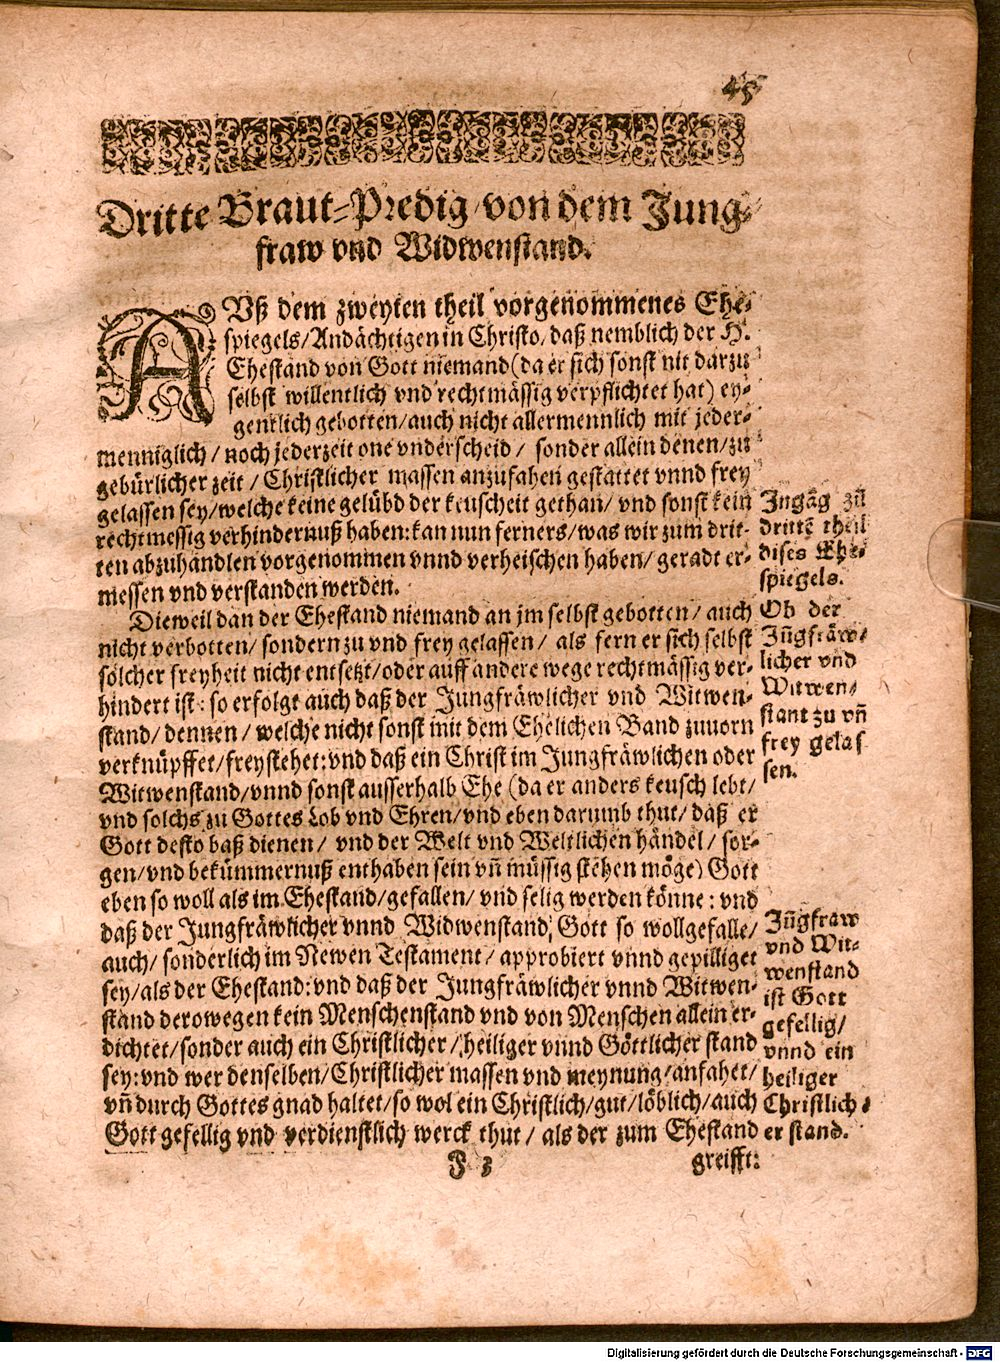 45
Dritte Braut-Predig/von dem Jung-
fraw vnd Widwenstand.
AVß dem zweyten theil vorgenommenes Ehe-
spiegels/Andächtigen in Christo/daß nemblich der H.
Ehestand von Gott niemand (da er sich sonst nit darzu
selbst willentlich vnd rechtmässig verpflichtet hat) ey-
gentlich gebotten/auch nicht allermennlich mit jeder-
menniglich/noch jederzeit one vnderscheid/ sonder allein denen/zu
gebürlicher zeit/Christlicher massen anzufahen gestattet vnnd frey
gelassen sey/welche keine gelübd der keuscheit gethan/ vnd sonst kein
rechtmessig verhindernuß haben:kan nun ferners/was wir zum drit-
ten abzuhandlen vorgenommen vnnd verheischen haben/ geradt er-
messen vnd verstanden werden.
Dieweil dan der Ehestand niemand an jm selbst gebotten/ auch
nicht verbotten/ sondern zu vnd frey gelassen/ als fern er sich selbst
solcher freyheit nicht entsetzt/oder auff andere wege rechtmässig ver-
hindert ist: so erfolgt auch daß der Jungfräwlicher vnd Witwen-
stand/ dennen/ welche nicht sonst mit dem Ehelichen Band zuuorn
verknüpffet/frey stehet:vnd daß ein Christ im Jungfräwlichen oder
Witwenstand/vnnd sonst ausserhalb Ehe (da er anders keusch lebt/
vnd solchs zu Gottes Lob vnd Ehren/vnd eben darumb thut/ daß er
Gott desto baß dienen/ vnd der Welt vnd Weltlichen händel/ sor-
gen/vnd bekümmernuß enthaben sein vñ müssig stehen möge) Gott
eben so woll als im Ehestand/gefallen/ vnd selig werden könne: vnd
daß der Jungfräwlicher vnnd Widwenstand, Gott so wollgefalle/
auch/ sonderlich im Newen Testament/ approbiert vnnd gepilliget
sey/als der Ehestand:vnd daß der Jungfräwlicher vnnd Witwen-
stand derowegen kein Menschenstand vnd von Menschen allein er-
dichtet/sonder auch ein Christlicher/ heiliger vnnd Göttlicher stand
sey:vnd wer denselben/Christlicher massen vnd meynung/anfahet/
vñ durch Gottes gnad haltet/so wol ein Christlich/gut/löblich/auch
Gott gefellig vnd verdienstlich werck thut/ als der zum Ehestand
J 3
greifft:
Ingãg zũ
dritte theil
dises Ehe-
spiegels.
Ob der
Jũgfräw-
licher vnd
Witwen-
stant zu vñ
frey gelas
sen.
Jũgfraw
vnd Wit-
wenstand
ist Gott
gefellig/
vnnd ein
heiliger
Christlich-
er stand.
Digitalisierung gefördert durch die Deutsche Forschungsgemeinschaft - DFG